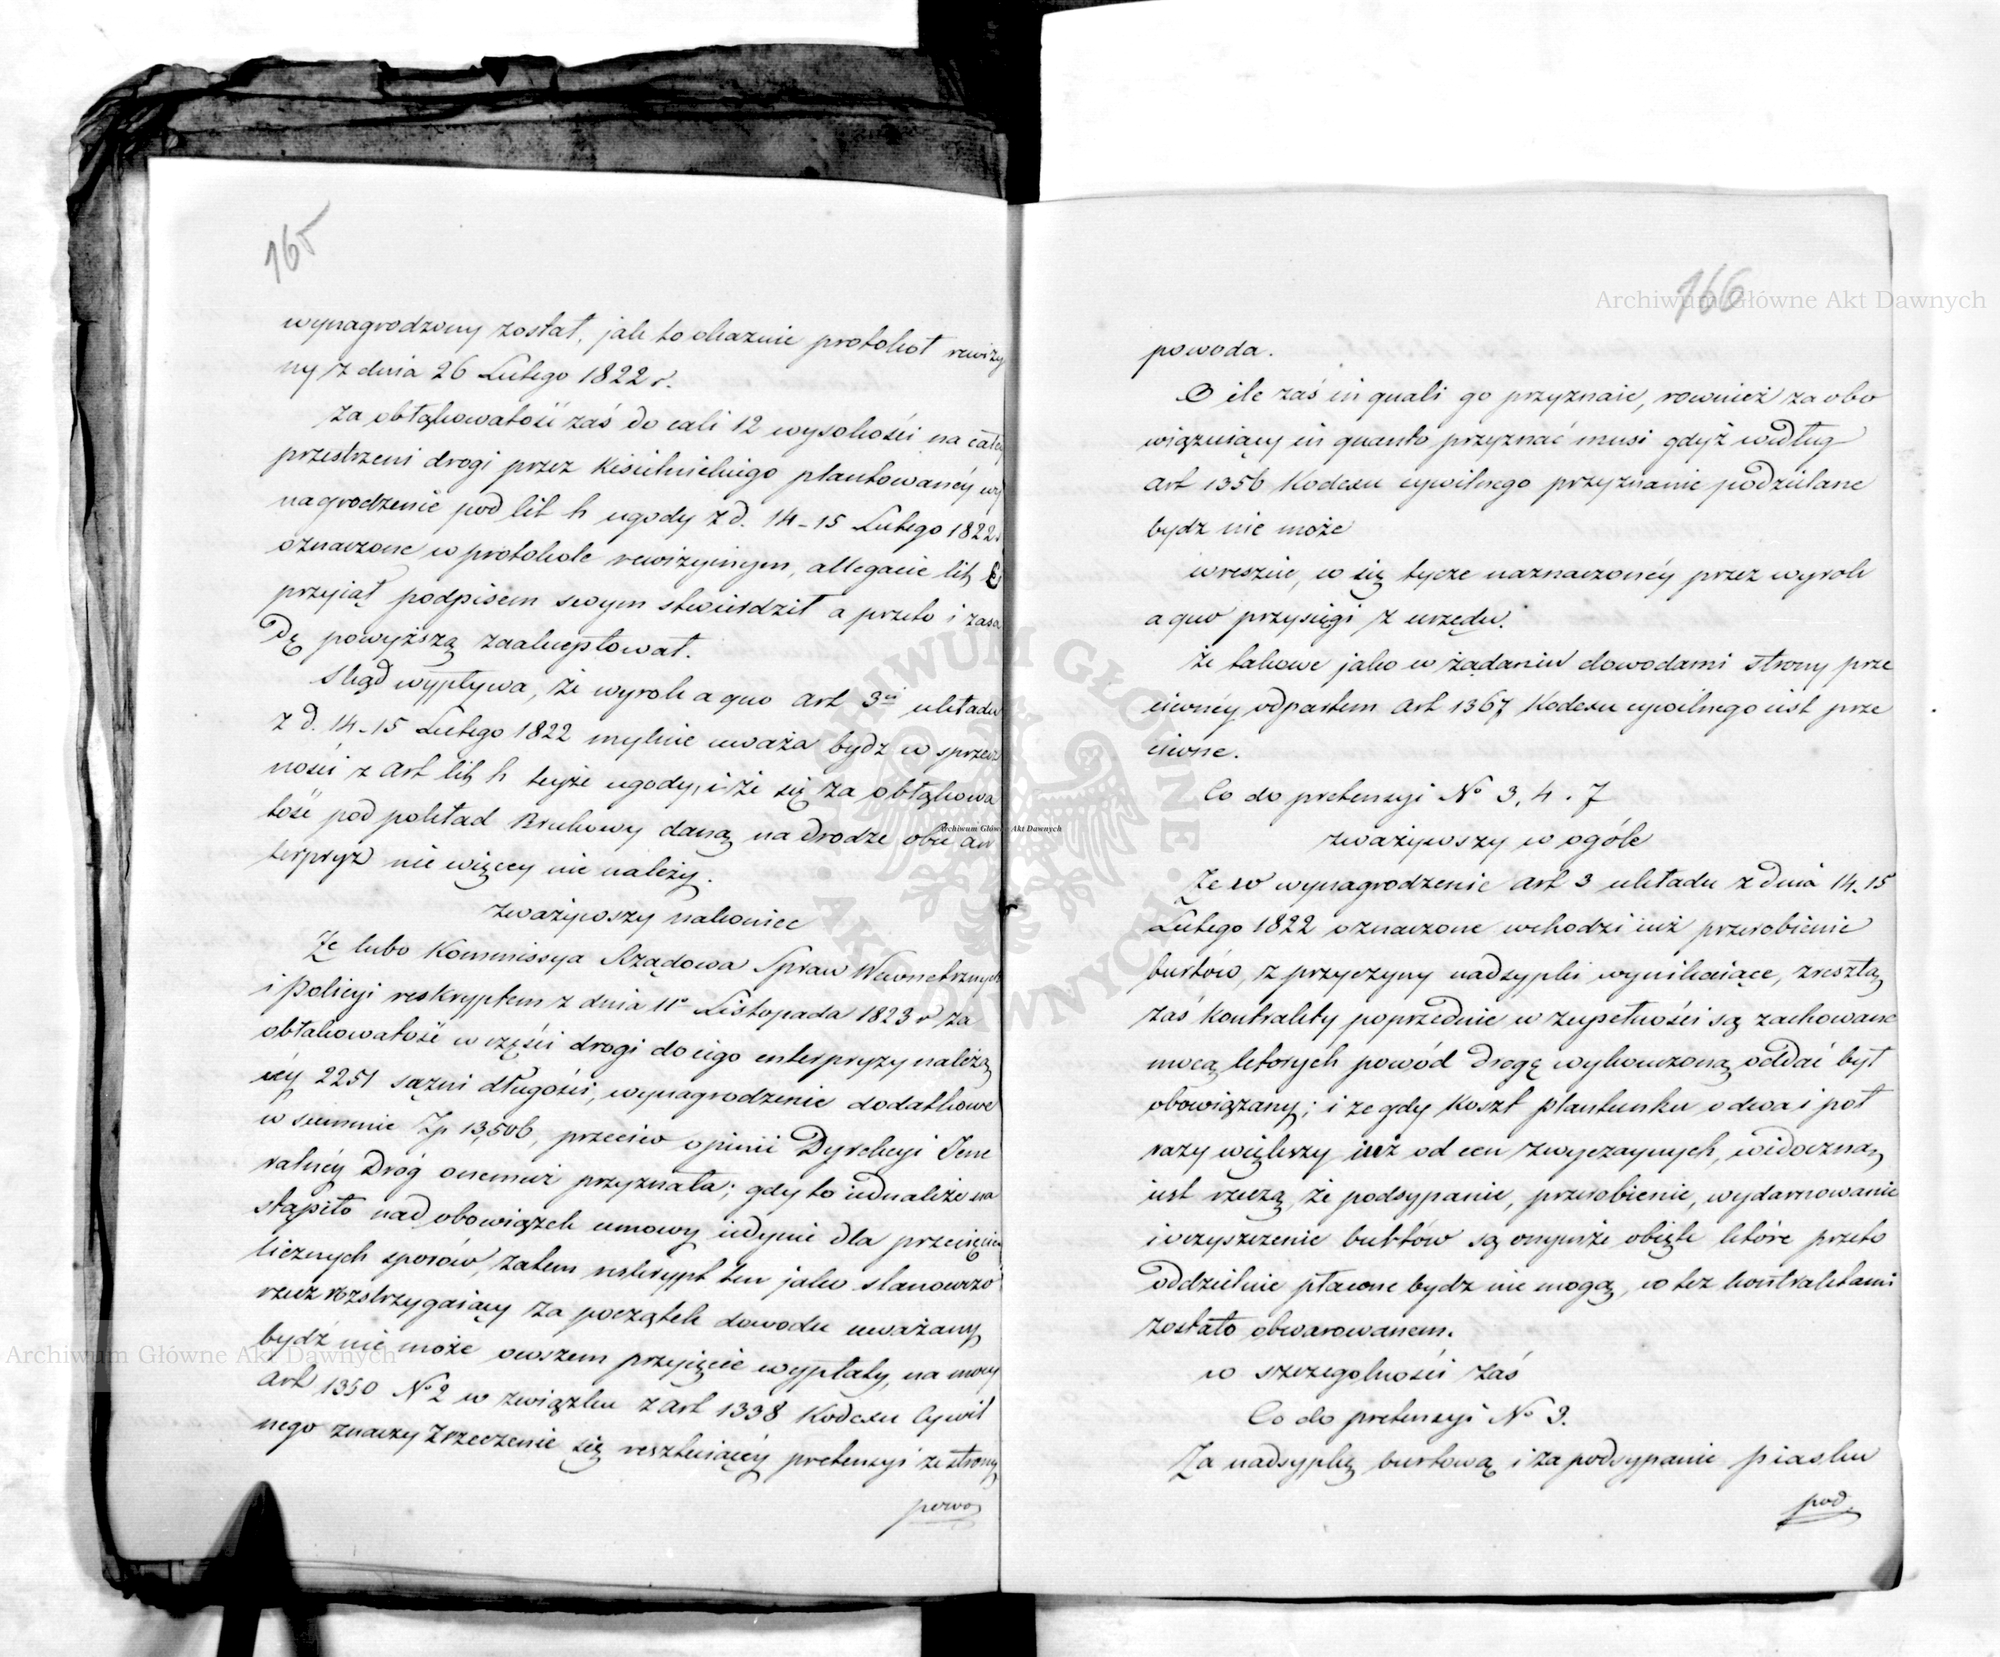 165
wynagrodzony został, jak to okazuie protokoł rewizy
ny z dnia 26 Lutego 1822 r.
za obłąkowatość zaś do cali 12 wysokości na całey
przestrzeni drogi przez Kisielnickiego plantowanéy wy
nagrodzenie pod lit h ugody z d. 14-15 Lutego 1822 r
oznaczone w protokole rewizyinym, allegacie lit E
przyiął podpisem swym stwierdził a przeto i zasa
dę powyższą zaakceptował.
Ztąd wypływa, że wyrok a quo art 3ci układu
z d. 14-15 Lutego 1822 mylnie uważa bydz w sprzecz
ności z art lit h teyże ugody, i że się za obłąkowa
tość pod pokład Brukowy daną na drodze obu an
terpryz nic więcey nie należy.
zważywszy nakoniec
Że lubo Kommissya Rządowa Spraw Wewnetrznych
i Policyi reskryptem z dnia 11o Listopada 1823 r za
obłakowatość w części drogi do iego enterpryzy należą
céy 2251 sążni długości, wynagrodzenie dodatkowe
w summie Zp 13,506, przeciw opinii Dyrekcyi Jene
ralnéy Dróg onemuż przyznała; gdy to iednakże na
stąpiło nad obowiązek umowy iedynie dla przecięcia
licznych sporów, zatem reskrypt ten jako stanowczo
rzecz rozstrzygaiący za początek dowodu uważany
bydź nie może owszem przyięcie wypłaty, na mocy
art 1350 No 2 w związku z art 1338 Kodexu Cywil
nego znaczy zrzeczenie się resztuiącéy pretensyi ze strony
powo
166
powoda.
O ile zaś in quali go przyznaie, rownież za obo
wiązuiący in quanto przyznać musi gdyż według
art 1356 Kodexu cywilnego przyznanie podzielane
bydz nie może
wreszcie, co się tycze naznaczonéy przez wyrok
a quo przysięgi z urzędu.
że takowe jako w żądaniu dowodami strony prze
ciwnéy odpartem art 1367 Kodexu cywilnego iest prze
ciwne.
Co do pretensyi No 3, 4. 7
zważywszy w ogóle
Że w wynagrodzenie art 3 układu z dnia 14-15
Lutego 1822 oznaczone wchodzi iuż przerobienie
burtów, z przyczyny nadsypki wynikaiące, zresztą
zaś kontrakty poprzednie w zupełności są zachowane
mocą ktorych powód drogę wykończoną oddać był
obowiązany; i że gdy koszt plantunku o dwa i poł
razy większy iuż od cen zwyczaynych, widoczną
iest rzeczą, że podsypanie, przerobienie, wydarnowanie
i oczyszczenie burtów są onymże obięte które przeto
oddzielnie płacone bydz nie mogą, co też kontraktami
zostało obwarowanem.
w szczegolności zaś
Co do pretensyi No 3.
Za nadsypkę burtową i za podsypanie piasku
pod
Archiwum Główne Akt Dawnych
Archiwum Główne Akt Dawnych
Archiwum Główne Akt Dawnych
ARCHIWUM GŁÓWNE AKT DAWNYCH